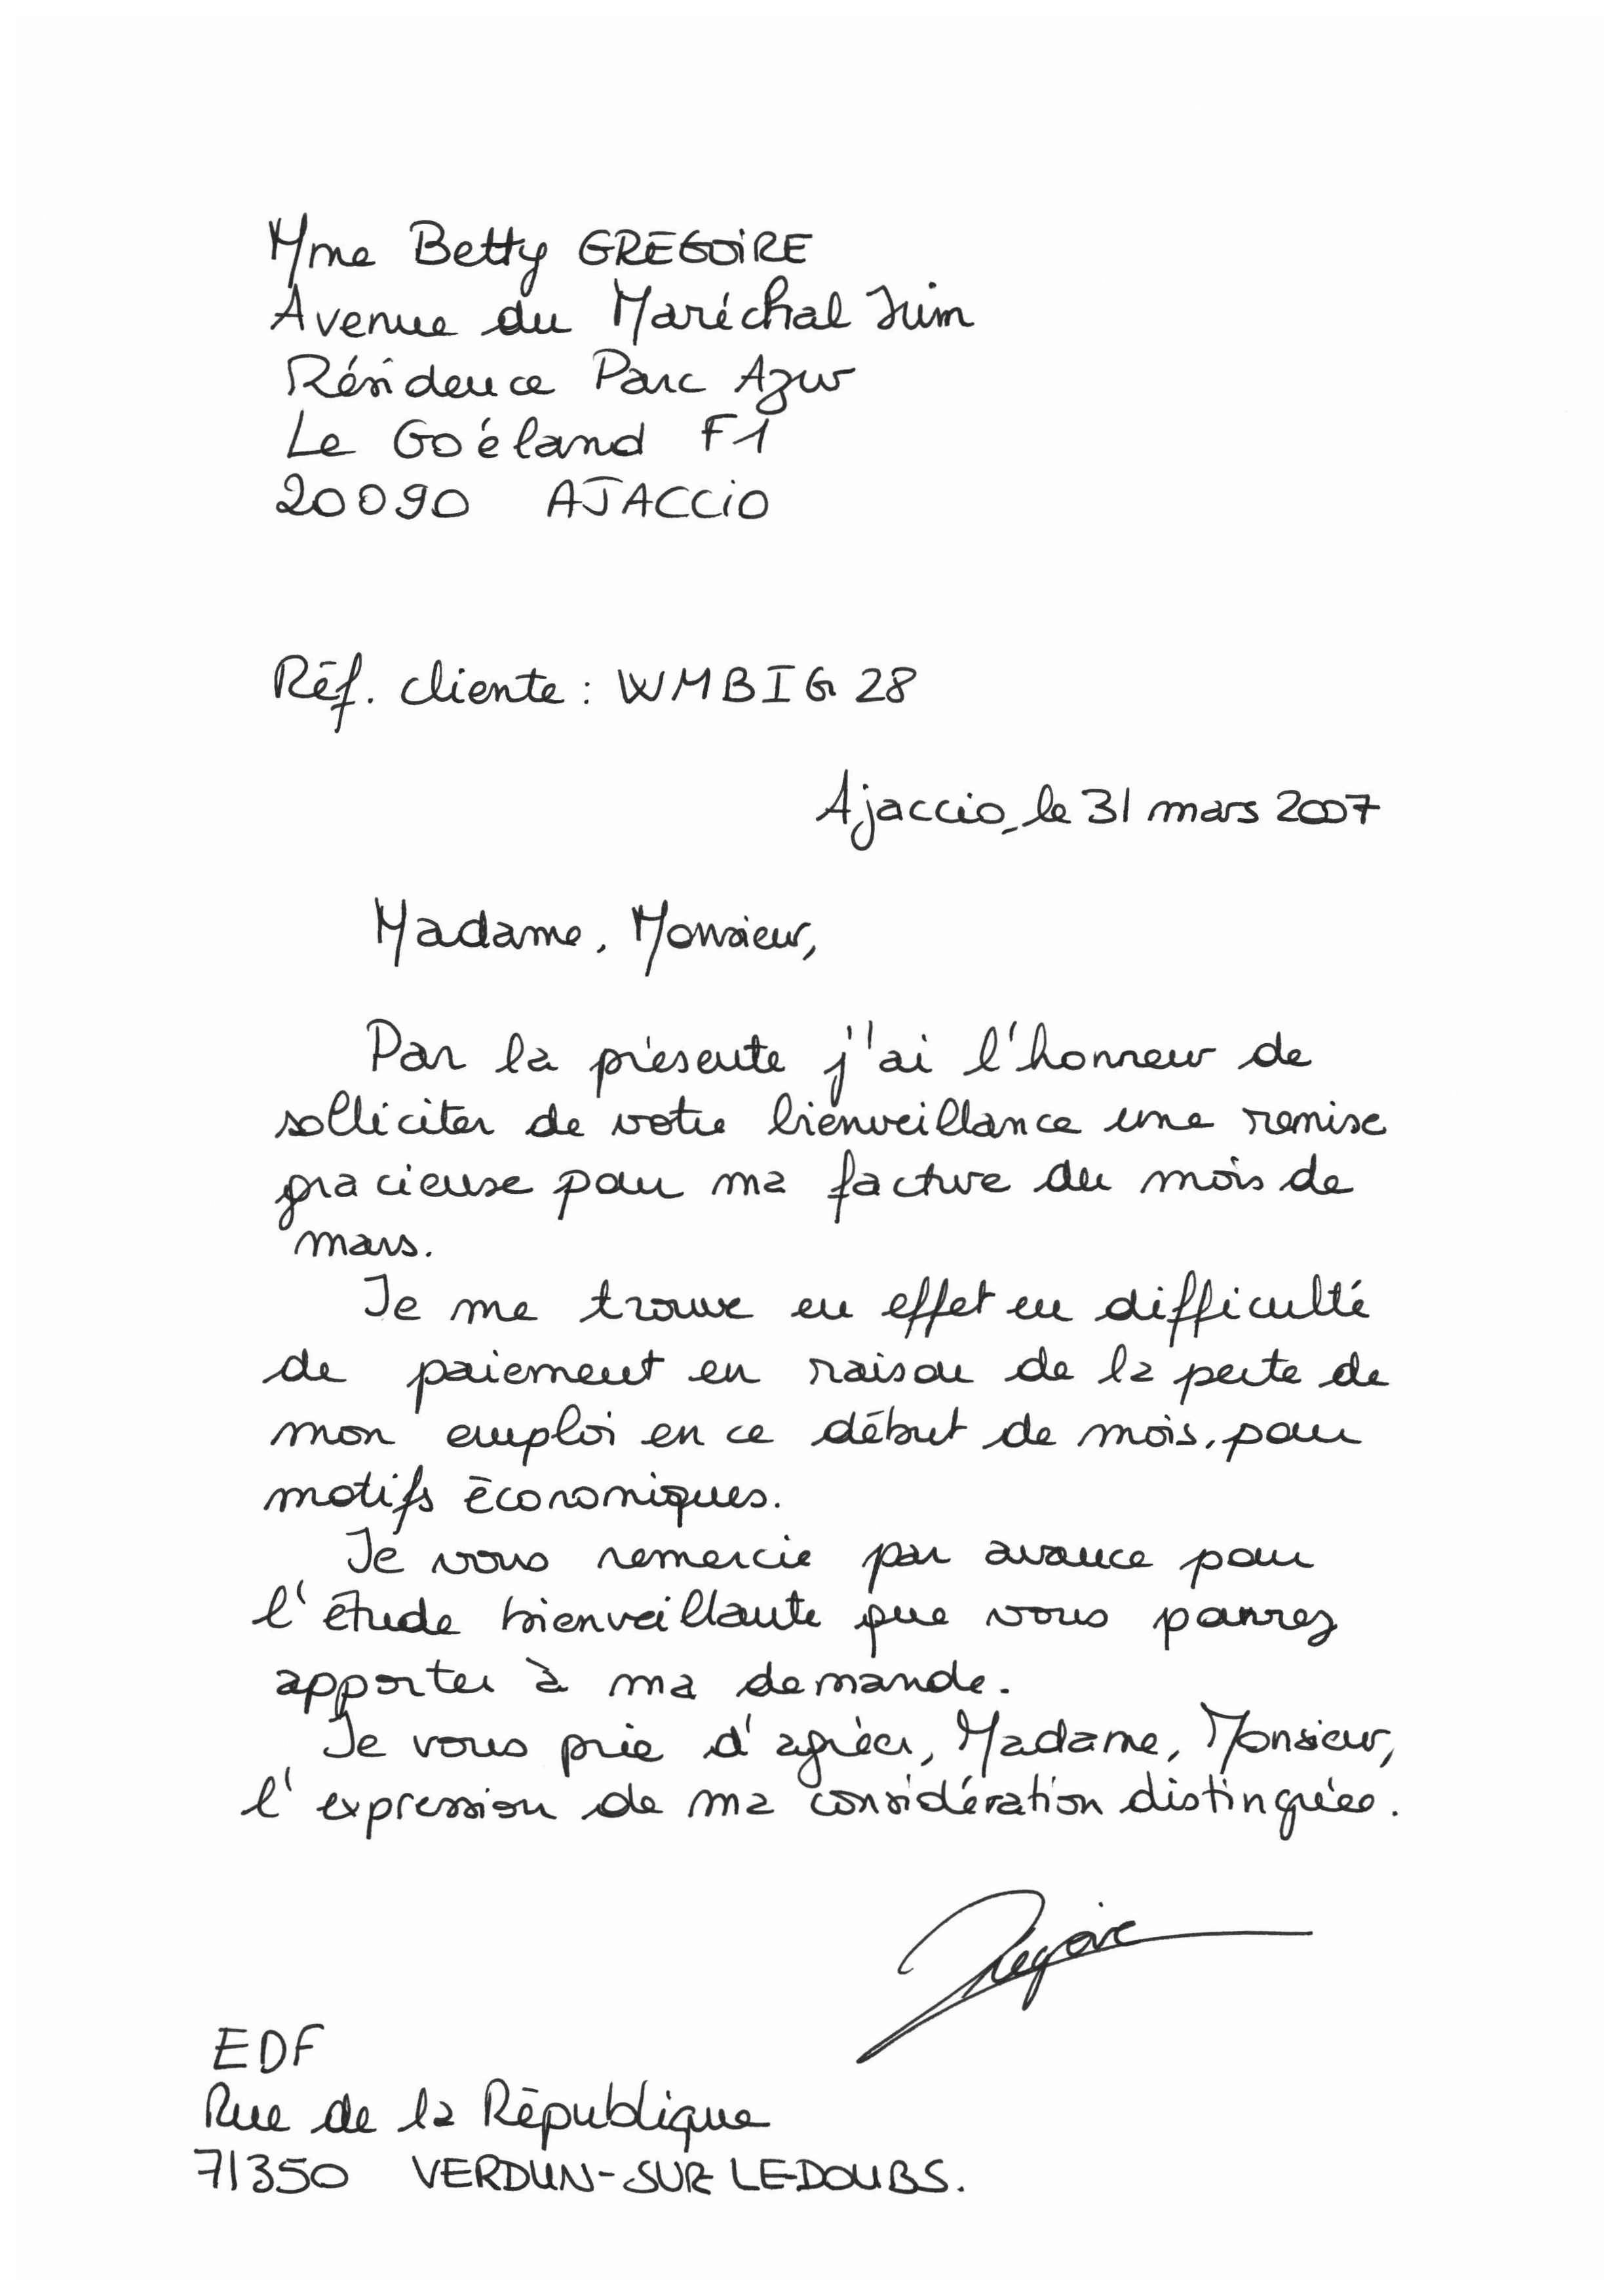 Mme Betty GREGOIRE
Avenue du Maréchal Juin
Résidence Parc Azur
Le Goéland F1
20090 AJACCIO
Réf. cliente : WMBIG 28
Ajaccio, le 31 mars 2007
Madame, Monsieur,
Par la présente j'ai l'honneur de
solliciter de votre bienveillance une remise
gracieuse pour ma facture du mois de
mars.
Je me trouve en effet en difficulté
de paiement en raison de la perte de
mon emploi en ce début de mois, pour
motifs économiques.
Je vous remercie par avance pour
l'étude bienveillante que vous pourrez
apporter à ma demande.
Je vous prie d'agréer, Madame, Monsieur,
l'expression de ma considération distinguée.
Gregoire
EDF
Rue de la République
71350 VERDUN-SUR LE-DOUBS.